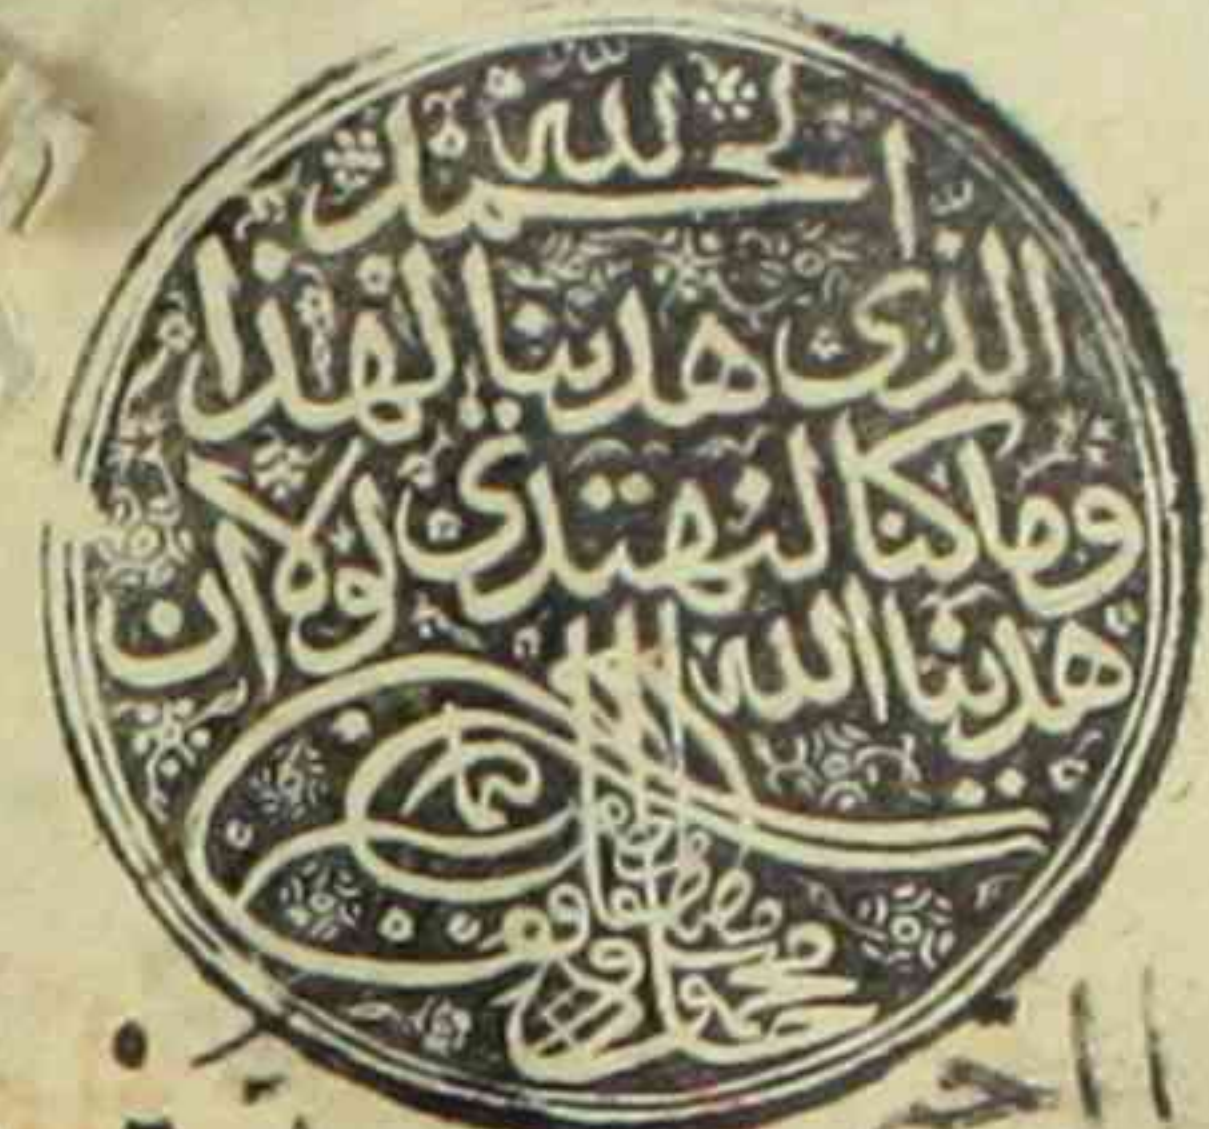 الحمد لله
الذى هدينا لهذا
وما كنا لنهتدى لولا ان
هدينا الله
محمود خان بن مصطفى مظفر دائما